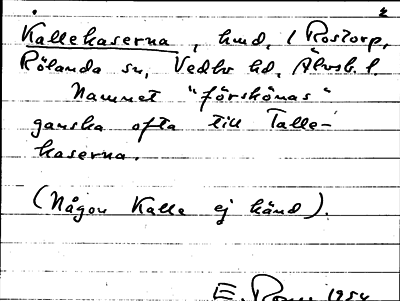 Kallekaserna, hmd, i Rostorp,
Rölanda sn, Vedbo hd, Älvsb. l.
Namnet "förskönas"
ganska ofta till Talle-
kaserna.
(Någon Kalle ej känd).
E. 1954